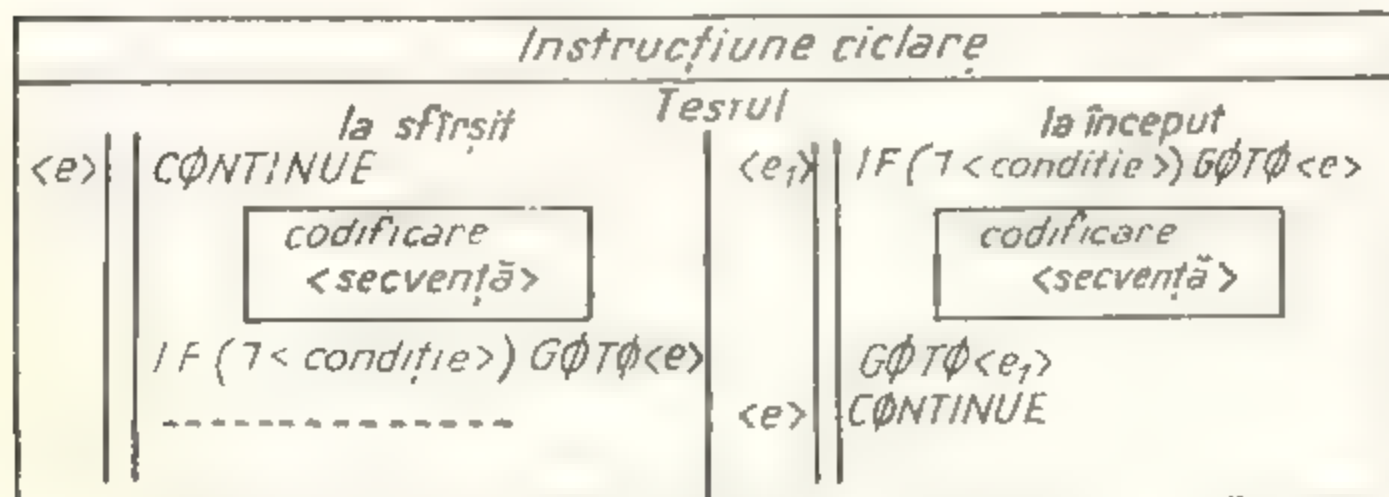 Instrucțiune ciclare
Testul
la sfîrșit
<e> CØNTINUE
codificare
<secvență>
IF(7<condiție>) GØTØ<e>
la început
<e₁> IF(7<conditie>) GØTØ<e>
codificare
<secvență>
GØTØ<e₁>
<e> CØNTINUE